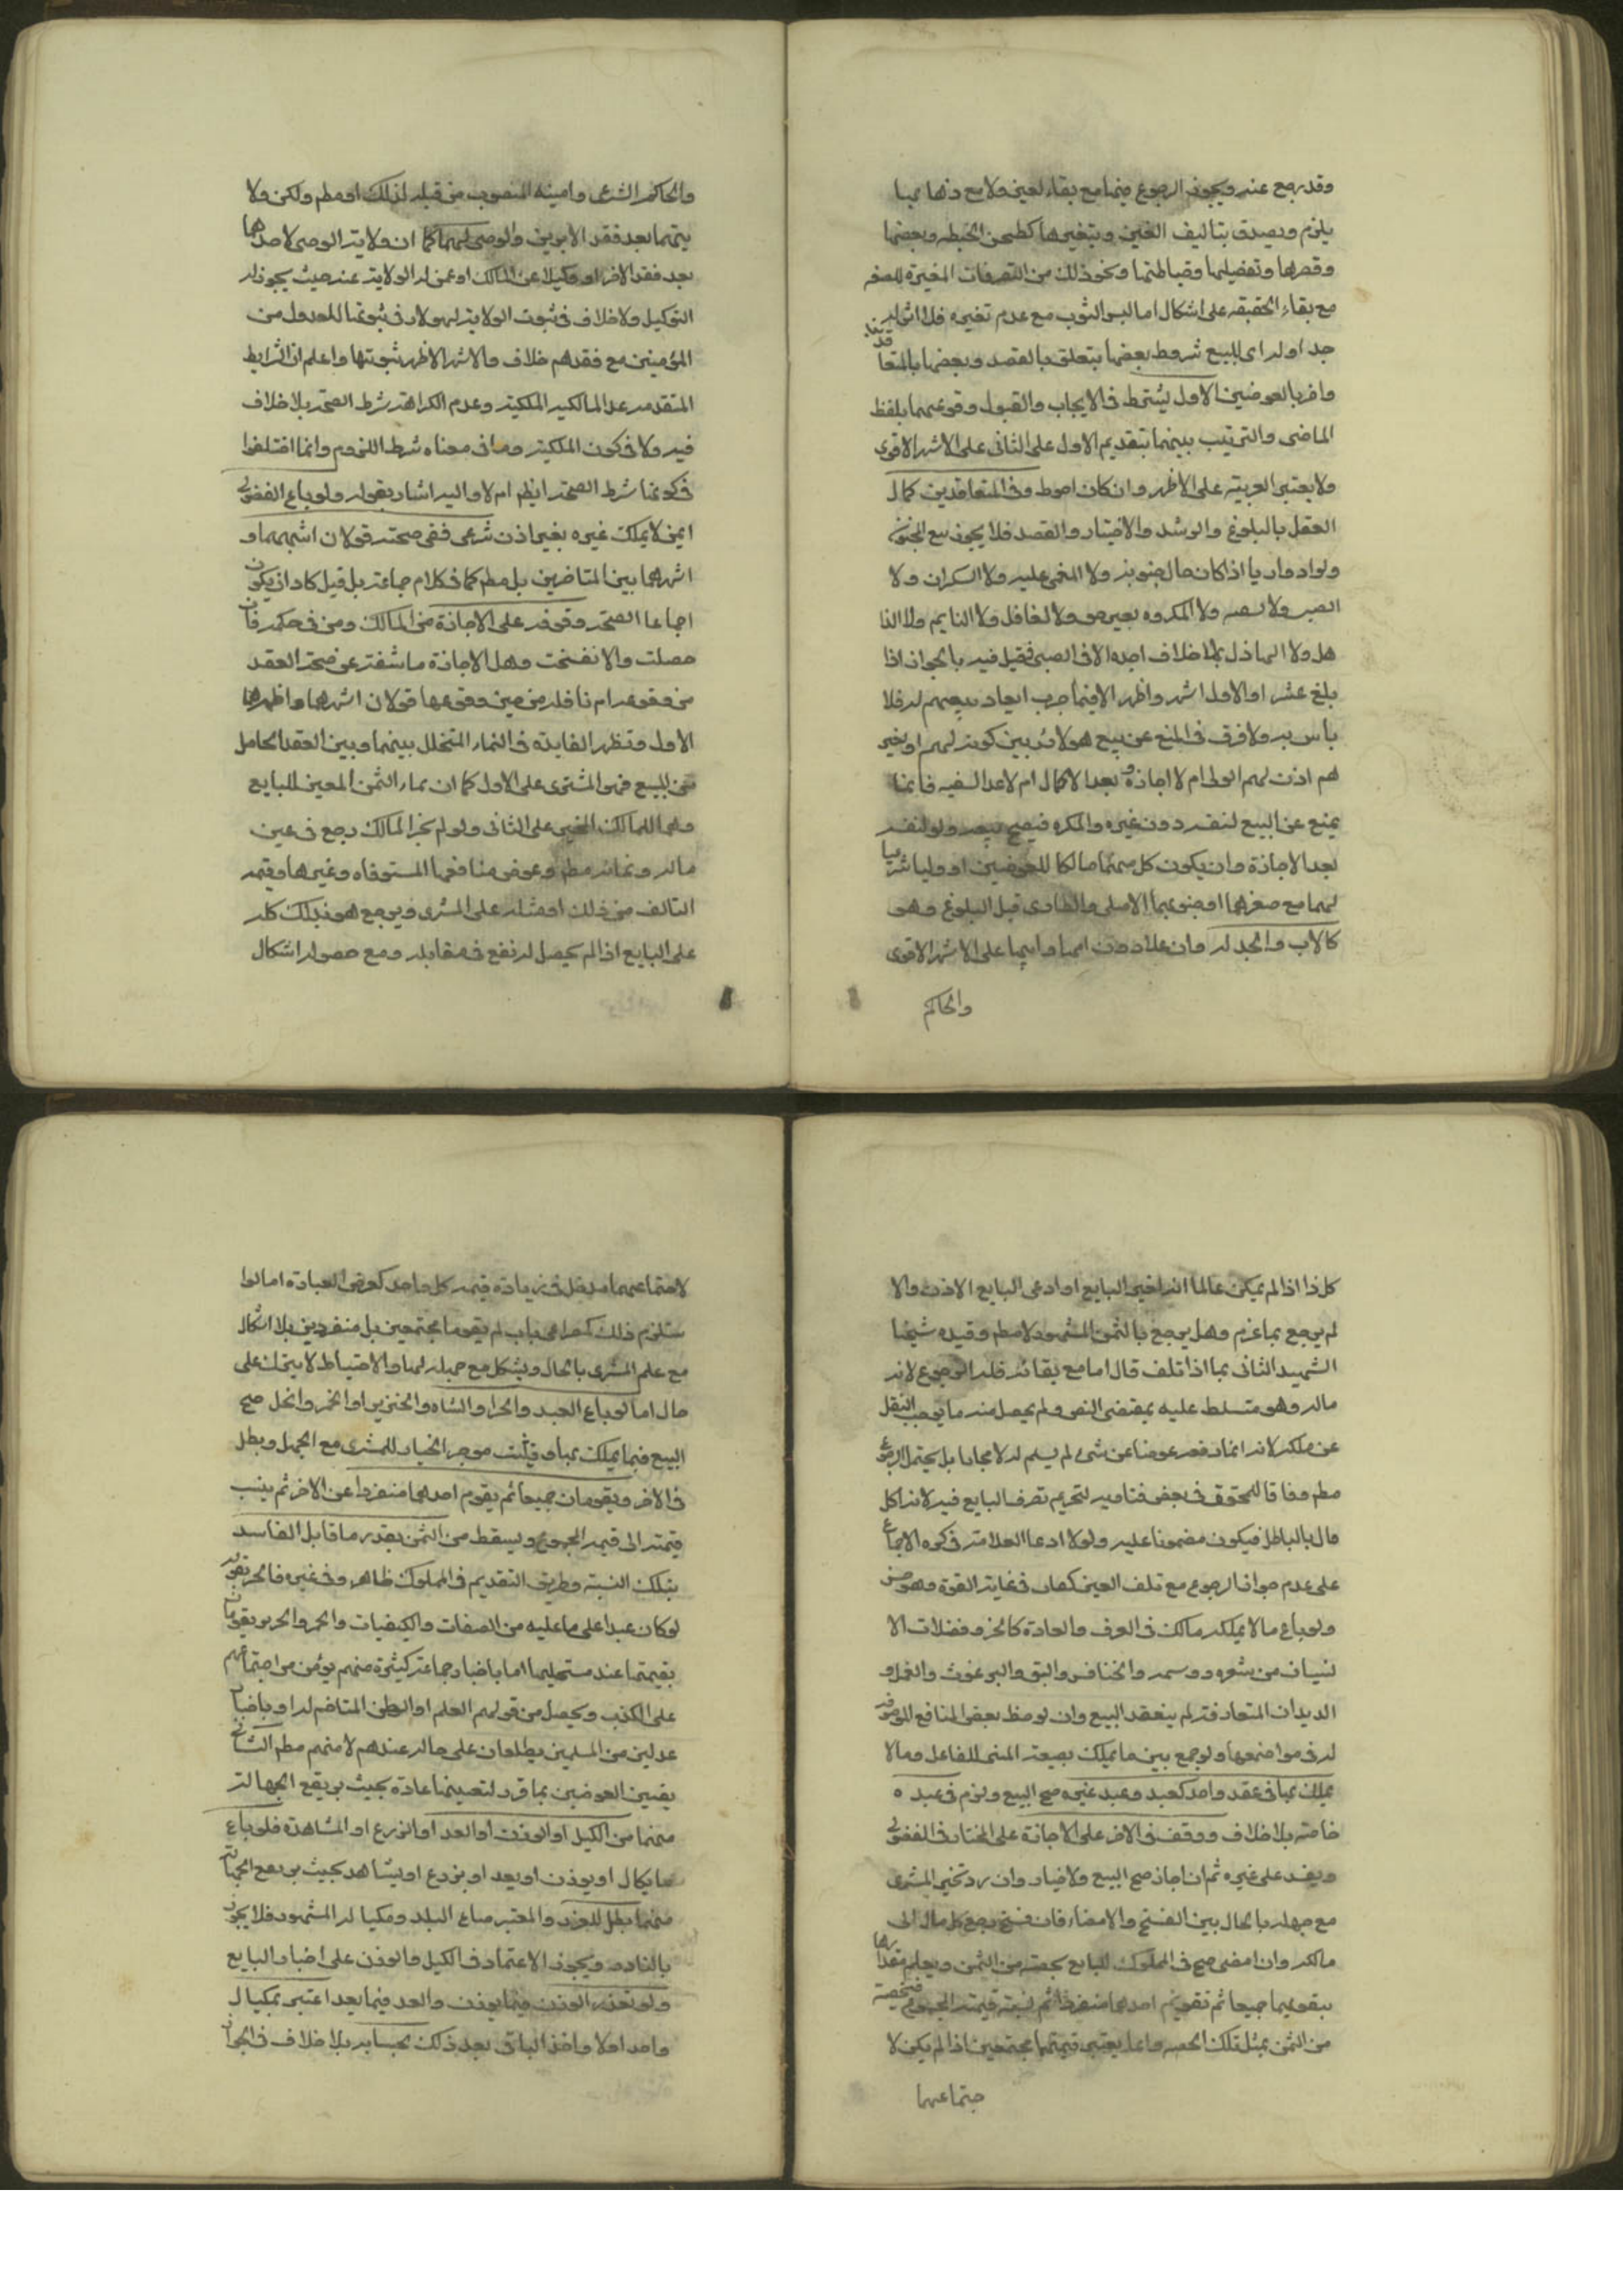 وقد رجع عنه ويجوز الرجوع فيها مع بقاء العين ولا مع ذهابها
يلزم ويصدق بتاليف العين وبتغيرها كطحن الحنطه وبعضها
وقصرها وتفصيلها وخياطتها ونحو ذلك من التصرفات المغيرة للصفه
مع بقاء الحقيقه على اشكال اما لبس الثوب مع عدم تغيره فلا اثر له
جدا وله اى للبيع شروط بعضها يتعلق بالعقد وبعضها بالمتعا قد
واخر بالعوضين الاول يشترط فى الايجاب والقبول وقوعهما بلفظ
الماضى والترتيب بينهما بتقديم الاول على الثانى على الاشهر الاقوى
ولا يعتبر العربيه على الاظهر وان كان احوط وفى المتعاقدين كمال
العقل بالبلوغ والرشد والاختيار والقصد فلا يجوز بيع المجنون
ولو ادواريا اذا كان حال جنونه ولا المغمى عليه ولا السكران ولا
الصبى ولا السفيه ولا المكروه بغير حق ولا الغافل ولا النايم ولا الذا
هل ولا الهاذل بلا خلاف اجده الا فى الصبى فقيل فيه بالجواز اذا
بلغ عشرا والاول اشهر واظهر الا فيما جرت العاده ببيعهم له فلا
باس به ولا فرق فى المنع عن بيع هولاء بين كونه لهم او لغير
هم اذن لهم الولى ام لا اجازه بعد الاكمال ام لا عدا السفيه فانما
يمنع عن البيع لنفسه دون غيره والمكره فيصح بيعه ولو لنفسه
بعد الاجازة وان يكون كل منهما مالكا للعوضين او وليا شرعيا
لهما مع صغرهما او جنونهما الاصلى والطارى قبل البلوغ وهو
كالاب والجد له وان علا دون امها وابيها على الاشهر الاقوى
والحاكم
والحاكم الشرعى وامينه المنصوب من قبله لذلك او مطم ولكن ولا
يتهما بعد فقد الابوين والوصى لهما كما ان ولاية الوصى لاحدهما
بعد فقد الاخر او وكيلا عن المالك او عمن له الولاية عنه حيث يجوز له
التوكيل ولا خلاف فى ثبوت الولاية لهولاء وفى ثبوتها للعدول من
المؤمنين مع فقدهم خلاف والاشهر الاظهر ثبوتها واعلم ان الشرايط
المتقدمه عدا المالكيه الملكية وعدم الكراهة شرط الصحة بلا خلاف
فيه ولا فى كون الملكية وما فى معناه شرط اللزوم وانما اختلفوا
فى كونها شرط الصحة ايظم ام لا واليه اشار بقوله ولو باع الفضولى
ايمن لا يملك غيره بغير اذن شرعى ففى صحته قولان اشبههما و
اشهرهما بين المتاخرين بل مطم كما فى كلام جماعة بل قيل كاد ان يكون
اجماعا الصحة وقوفه على الاجازة من المالك ومن فى حكمه فان
حصلت والا انفسخت وهل الاجازة كاشفة عن صحة العقد
من وقوعه ام ناقله من حين وقوعها قولان اشهرهما واظهرهما
الاول وتظهر الفايدة فى النماء المتخلل بينهما وبين العقد الحاصل
من المبيع فهو المشترى على الاول كما ان نماء الثمن المعين للبايع
وهى للمالك المجيز على الثانى ولو لم يجز المالك رجع فى عين
ماله ونمائه مطم وعوض منافعها المستوفاه وغيرها وقيمة
التالف من ذلك او مثله على المشترى ويرجع هو بذلك كله
على البايع اذا لم يحصل له نفع فى مقابله ومع حصوله اشكال
كل ذا اذا لم يكن عالما انه لغير البايع او ادعى البايع الاذن والا
لم يرجع بما غرم وهل يرجع بالثمن المشهور لا مطم وقيده شيخنا
الشهيد الثانى بما اذا تلف قال اما مع بقائه فله الرجوع لانه
ماله وهو متسلط عليه بمقتضى النص ولم يحصل منه ما يوجب النقل
عن ملكه لانه انما دفعه عوضا عن شىء لم يسلم له لا مجانا بل يحتمل الرجوع
مطم وفاقا للمحقق فى بعض فتاويه لتحريم تصرف البايع فيه لانه اكل
مال بالباطل فيكون مضمونا عليه ولولا ادعا العلامة فى كره الاجماع
على عدم جواز الرجوع مع تلف العين لكان فى غاية القوة وهو حسن
ولو باع ما لا يملكه مالك فى العرف والعادة كالخرو وفضلات الا
نسان من شعره ووسخه والخنافس والبق والبرغوث والقمل و
الديدان المتعارفة لم ينعقد البيع وان لوحظ بعض المنافع الموجوده
له فى مواضعها ولو جمع بين ما يملك بصيغة المبنى للفاعل وما لا
يملك بها فى عقد واحد كعبد وعبد غيره صح البيع ولزم فى عبده
خاصة بلا خلاف ووقف فى الاخر على الاجازة على المختار فى الفضولى
ويفسد على غيره ثم ان اجاز صح البيع ولا خيار وان رد تخير المشترى
مع جهله بالحال بين الفسخ والامضاء فان فسخ رجع كل مال الى
مالكه وان امضى صح فى المملوك للبايع بحصته من الثمن ويعلم مقدارها
بتقويمهما جميعا ثم تقويم احدهما منفردا ثم نسبة قيمته الجميع فيخصه
من الثمن بمثل تلك الحصه وانما يعتبر قيمتهما مجتمعين اذا لم يكن لا
جتماعهما
لاجتماعهما مدخل فى زيادة قيمه كل واحد كعوض العباده اما لو ا
ستلزم ذلك كمصراعى باب لم يقوما مجتمعين بل منفردين بلا اشكال
مع علم المشترى بالحال ويشكل مع جهله لهما والاحتياط لا يترك على
حال اما لو باع العبد والحر او الشاه والخنزير او الخمر والخل صح
البيع فيما يملك بها وقيل يثبت موجر الخيار للمشترى مع الجهل وبطل
فى الاخر ويقومان جميعا ثم يقوم احدهما منفردا عن الاخر ثم ينسب
قيمته الى قيمه المجموع ويسقط من الثمن بقدر ما قابل الفاسد
بتلك النسبة وطريق التقديم فى المملوك ظاهر وفى غيره فالحر يقوم
لو كان عبدا على ما عليه من الصفات والكيفيات والخمر والخنزير يقومان
بقيمتها عند مستحليها اما باخبار جماعة كثيرة منهم يؤمن من اجتماعهم
على الكذب ويحصل من قولهم العلم او الظن المتاخم له او باخبار
عدلين من المسلمين يطلعان على حاله عندهم لا منهم مطم الثانى
يقين العوضين بما قرر لتعيينها عادة بحيث يرتفع الجهالة
منها من الكيل او الوزن او العد او الزرع او المشاهدة فلو باع
ما يكال او يوزن او يعد او يزرع او يشاهد بحيث يرتفع الجهالة
منها بطل للغرر والمعتبر صاع البلد ومكياله المشهود فلا يجوز
بالنادر ويجوز الاعتماد فى الكيل والوزن على اخبار البايع
ولو تعذر الوزن فيما يوزن والعد فيما يعد اعتبر بمكيال
واحد اولا واخذ الباقى بعد ذلك بحسابه بلا خلاف فى الجواز